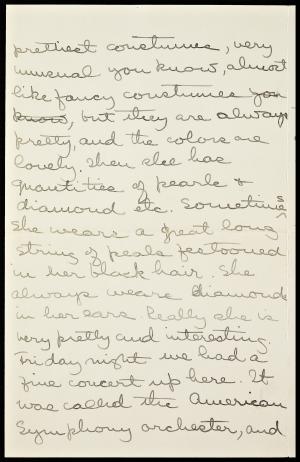 prettiest costumes, very
unusual you know, almost
like fancy costumes you
know, but they are always
pretty, and the colors are
lovely. Then she has
quantities of pearls &
diamond etc. Sometimes
She wears a great long
string of peals festooned
in her black hair. She
always wears diamonds
in her ears. Really she is
very pretty and interesting.
Friday night we had a
fine concert up here. It
was called the American
Symphony orchester, and